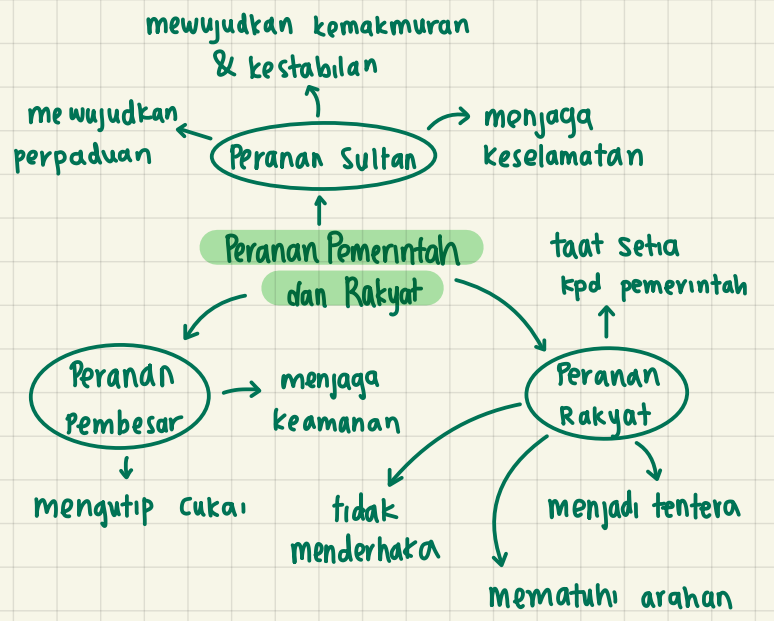 mewujudkan kemakmuran
& kestabilan
mewujudkan
perpaduan
Peranan Sultan
menjaga
keselamatan
Peranan Pemerintah
dan Rakyat
taat setia
kpd pemerintah
Peranan
Pembesar
menjaga
keamanan
mengutip cukai
Peranan
Rakyat
tidak
menderhaka
menjadi tentera
mematuhi arahan